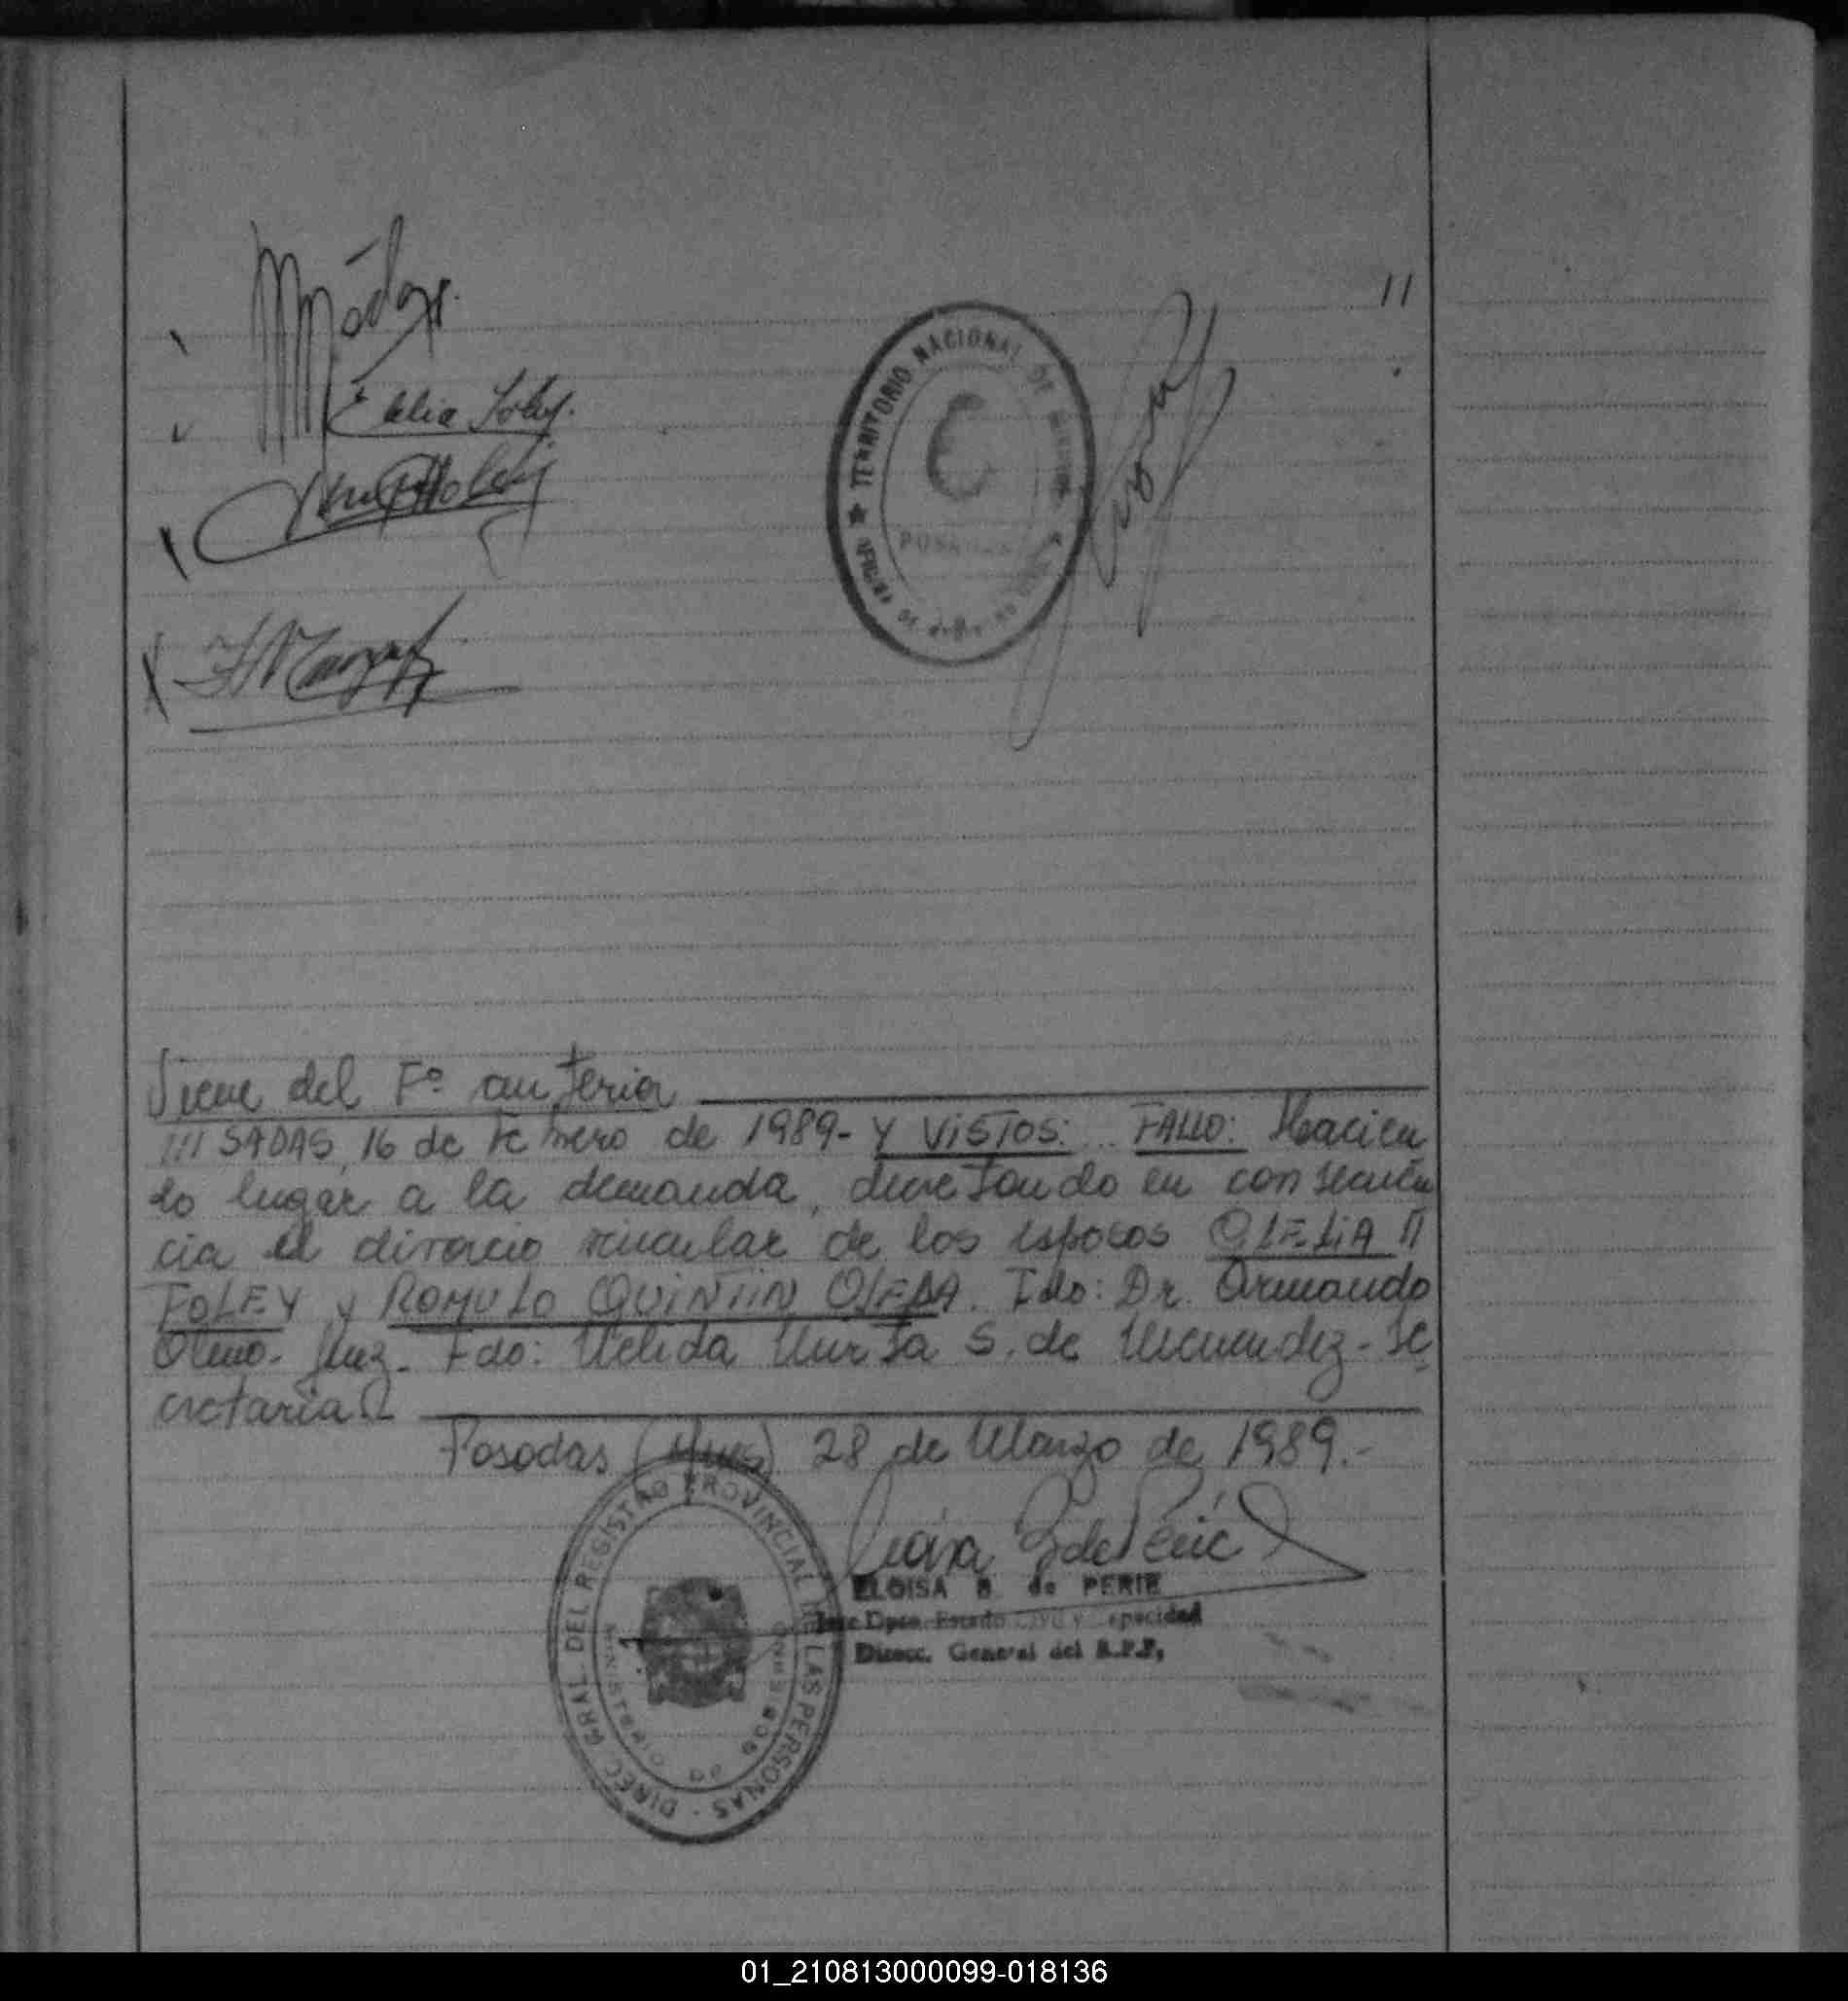 11
Elelia Foley.
TERRITORIO NACIONAL DE
POSADAS
Viene del Fº anterior
/// SADAS, 16 de Febrero de 1989- Y VISTOS: .. FALLO: Hacien
do lugar a la demanda, decretando en consecuen
cia el divorcio vincular de los esposos
FOLEY y ROMULO QUINTIN OJEDA. Fdo: Dr. Armando
Olmo. Juez. Fdo: Nélida Mirta S. de Menendez - Se
cretaria
Posadas (Mnes) 28 de Marzo de 1989.-
DIREC. GRAL. DEL REGISTRO PROVINCIAL DE LAS PERSONAS
MINISTERIO DE GOBIERNO
ELOISA B. de PERIE
Jefe Dpto. Estado Civil y Capacidad
Direcc. General del R.P.P.
01_210813000099-018136